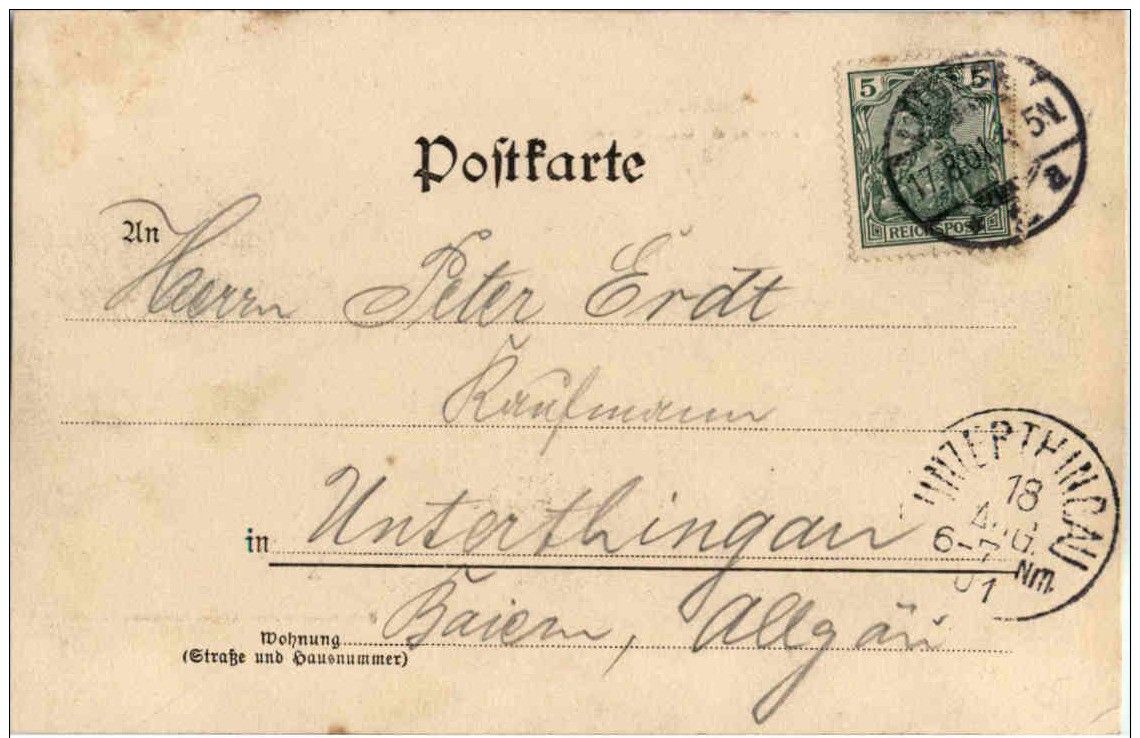 Postkarte
5 5
REICHSPOST
17.8.01. 5N
B
An
Herrn Peter Erdt
Kaufmann
in Unterthingau
UNTERTHINGAU
18
AUG.
6-7 Nm.
01
Baiern, Allgäu
Wohnung
(Straße und Hausnummer)